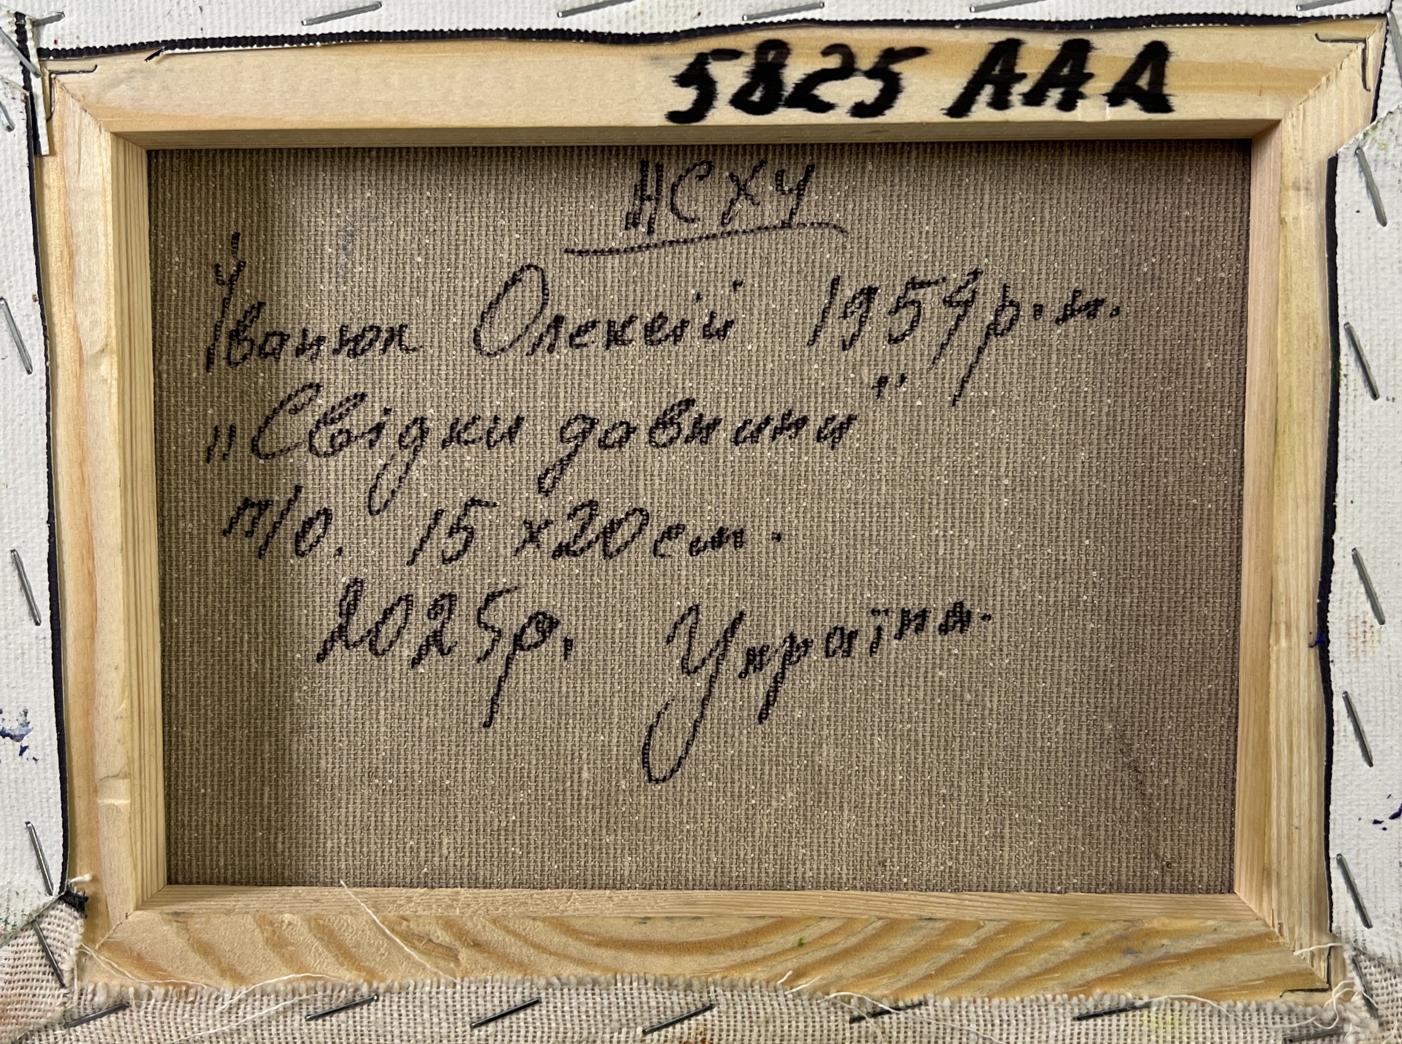 5825 AAA
НСХУ
Іванюк Олексій 1954 р.н.
„Свідки давнини"
п/о. 15 x 20 см.
2025р. Україна.